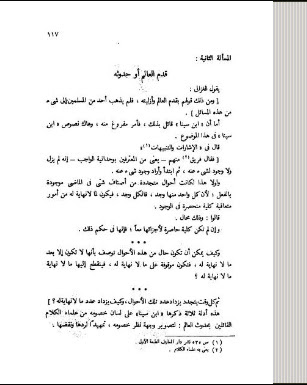 ١١٧
المسألة الثانية :
قدم العالم أو حدوثه
يقول الغزالى :
[ ومن ذلك قولهم بقدم العالم وأزليته ، فلم يذهب أحد من المسلمين إلى شىء
من هذه المسائل ] .
أما أن « ابن سينا » قائل بذلك ، فأمر مفروغ منه ، وهاك نصوص « ابن
سينا » فى هذا الموضوع .
قال فى « الإشارات والتنبيهات (١) » :
[ فقال فريق (٢) منهم – يعنى من المعترفين بوحدانية الواجب – إنه لم يزل
ولا وجود لشىء عنه ، ثم ابتدأ وأراد وجود شىء عنه .
ولولا هذا لكانت أحوال متجددة من أصناف شتى فى الماضى موجودة
بالفعل ؛ لأن كل واحد منها وجد ، فالكل وجد ، فيكون لما لا نهاية له من أمور
متعاقبة كلية منحصرة فى الوجود .
قالوا : وذلك محال .
وإن لم تكن كلية حاصرة لأجزائها معا ؛ فإنها فى حكم ذلك .
* * *
وكيف يمكن أن تكون حال من هذه الأحوال توصف بأنها لا تكون إلا بعد
ما لا نهاية له ، فتكون موقوفة على ما لا نهاية له ، فينقطع إليها ما لا نهاية
له ؟
* * *
ثم كل وقت يتجدد يزداد عدد تلك الأحوال ، وكيف يزداد عدد ما لا نهاية له ؟ ]
هذه أدلة ثلاثة ذكرها « ابن سينا » على لسان خصومه من علماء الكلام
القائلين بحدوث العالم ؛ لتصوير وجهة نظر خصومه ، تمهيدا لردها ونقضها .
(١) ص ٥٣٥ نشر دار المعارف الطبعة الأولى .
(٢) يعنى به علماء الكلام .